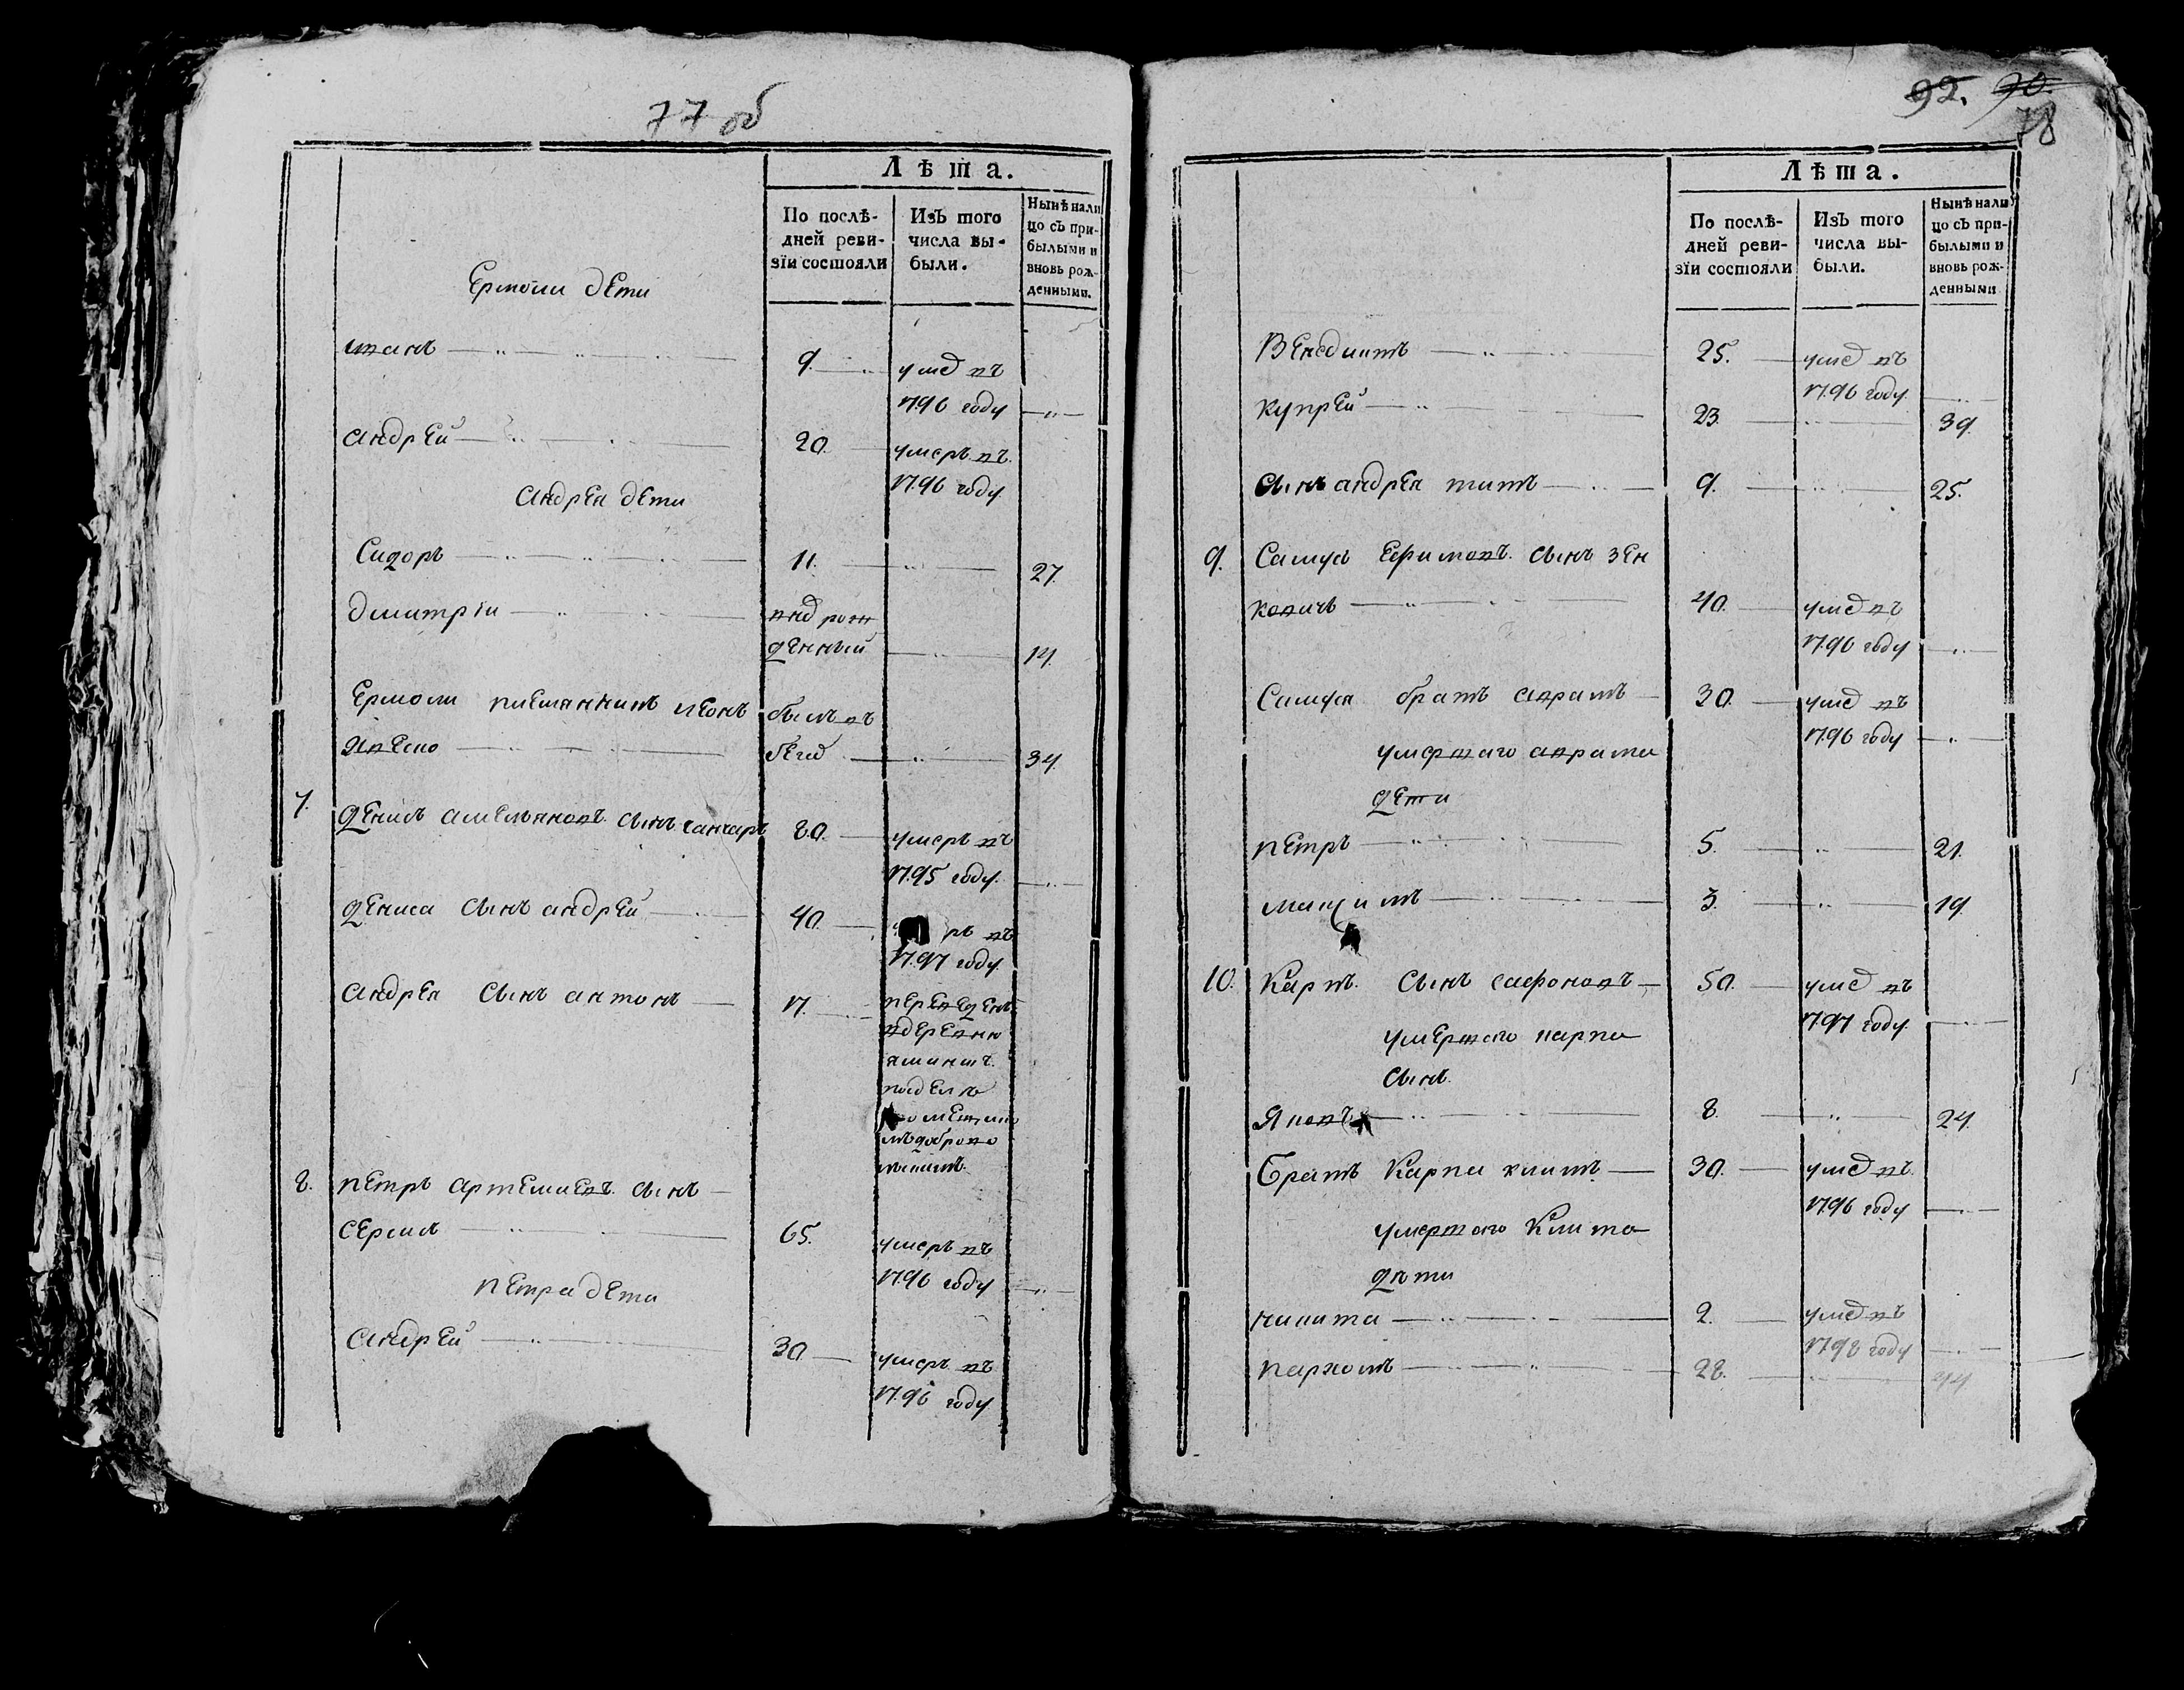 77 об
Лѣта.
По послѣ-
дней реви-
зїи состояли
Изъ того
числа вы-
были.
Нынѣ нали
цо съ при-
былыми и
вновь рож-
денными.
Ермоли дети
иванъ 9. умер въ
1796 году
андрей 20. умеръ въ
1796 году
андрея дети
Сидоръ 11. 27.
дмитрїи внов рож
денный 14.
Ермоли племянникъ леонъ былъ въ
Ивѣсно бегах 34.
7. денисъ амельяновъ сынъ ганчаръ 80. умеръ въ
1795 году.
дениса сынъ андрей 40. ръ въ
1797 году
андрея сынъ антонъ 17. переведенъ
вдеревню
8. петръ артемиевъ сынъ
65. умеръ въ
1796 году
петра дети
андрей 30 умеръ въ
1796 году
92. 90.
78
Лѣта.
По послѣ-
дней реви-
зїи состояли
Изъ того
числа вы-
были.
Нынѣ нали
цо съ при-
былыми и
вновь рож-
денными
Венедиктъ 25. умер въ
1796 году.
купрей 23. 39.
сынъ андрея титъ 9. 25.
9. Самусь Ефимовъ сынъ зен
ковичъ 40. умер въ
1796 году
Самуся братъ аврамъ 30. умер въ
1796 году
умершаго аврама
дети
петръ 5. 21.
максимъ 3. 19.
10. Карпъ сынъ сафоновъ 50. умер въ
1797 году.
умершаго карпа
сынъ
Яковъ 8. 24.
Братъ Карпа климъ 30. умер въ
1796 году
умершаго Клима
дѣти
никита 2. умер въ
1798 году
пархомъ 28. 44